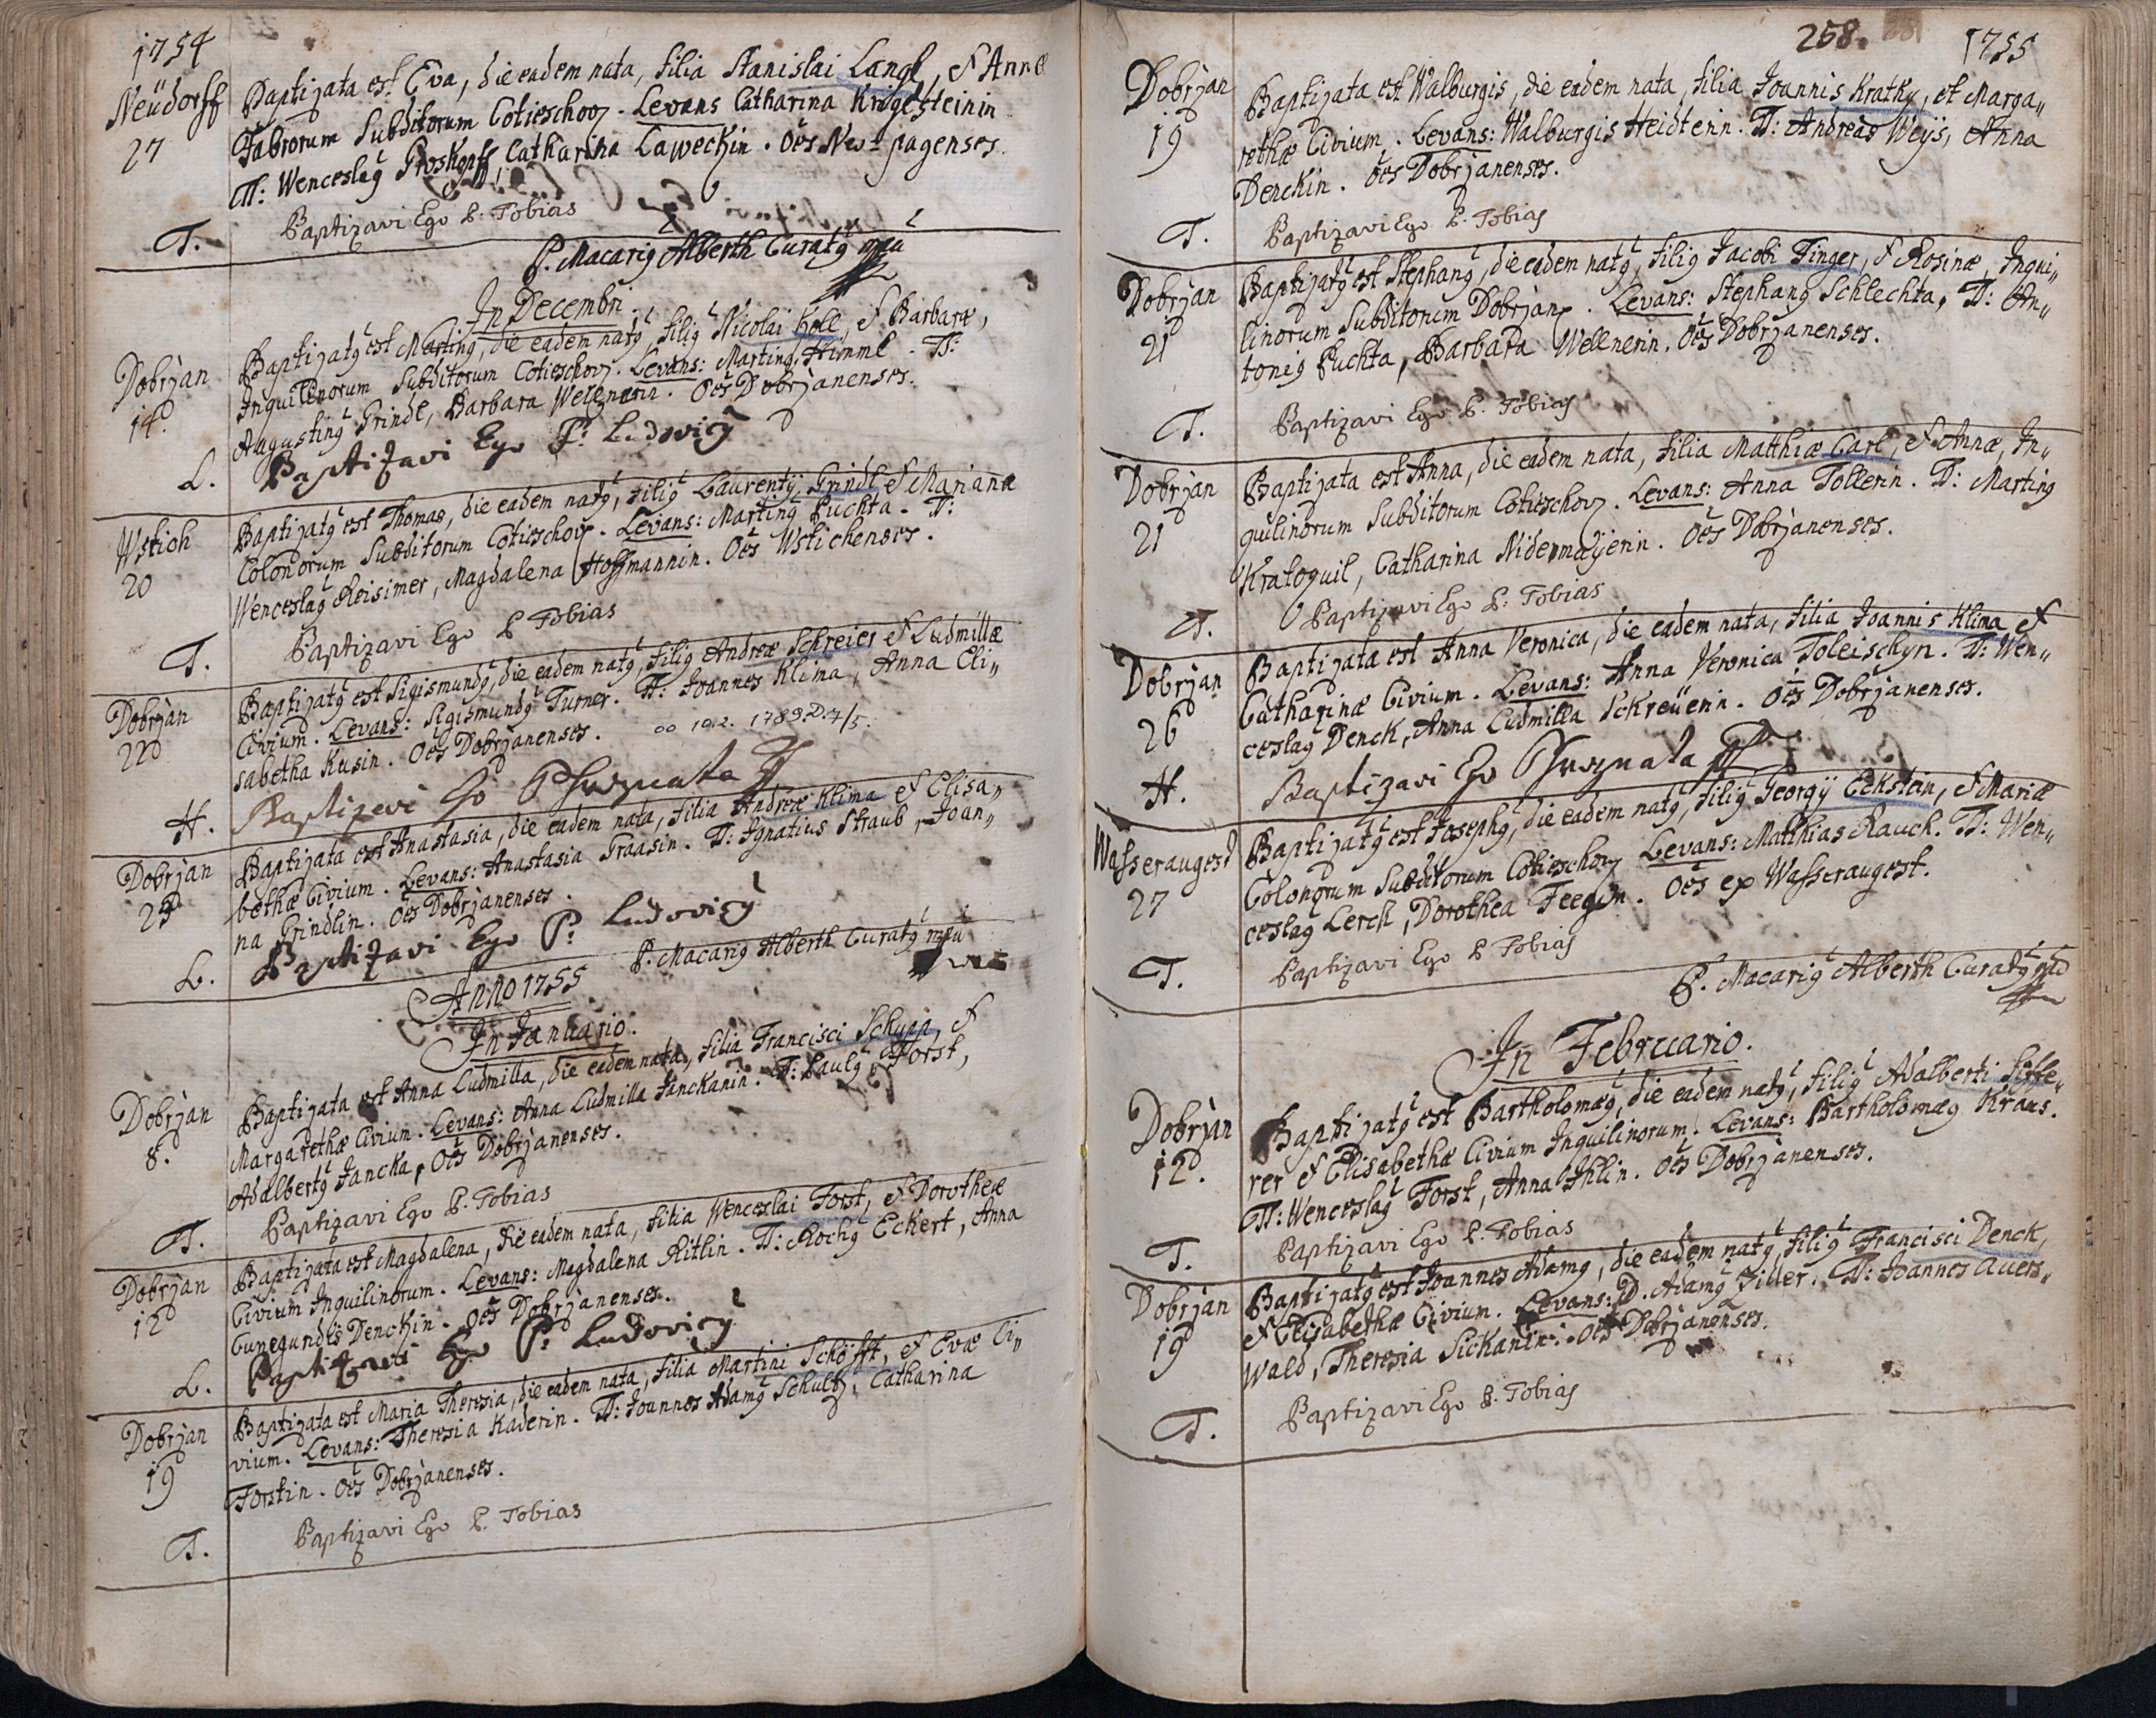 1754
Neüdorff
27
Baptizata est Eva, die eadem nata, filia Stanislai Langl, & Annæ
Fabrorum Subditorum Cotieschov. Levans Catharina Krigelsteinin
TT: Wenceslaꝰ Proskopff, Catharina Laweckin. Oēs Neo-pagenses.
T. Baptizavi Ego P. Tobias
P. Macariꝰ Alberth Curatꝰ mpu
In Decembri.
Dobrzan
14.
Baptizatꝰ est Martinꝰ, die eadem natꝰ, filiꝰ Nicolai Holl, & Barbaræ,
Inquilinorum Subditorum Cotieschov. Levans: Martinꝰ Himml. TT:
Augustinꝰ Grindl, Barbara Wellnerin. Oēs Dobrzanenses.
L. Baptizavi Ego P: Ludovicꝰ
Wstich
20
Baptizatꝰ est Thomas, die eadem natꝰ, filiꝰ Laurentij Grindl & Marianæ
Colonorum Subditorum Cotieschov. Levans: Martinꝰ Puchta. TT:
Wenceslaꝰ Reisimer, Magdalena Hoffmannin. Oēs Wstichenses.
T. Baptizavi Ego P Tobias
Dobrzan
22
Baptizatꝰ est Sigismundꝰ, die eadem natꝰ, filiꝰ Andreæ Schreier & Ludmillæ
Civium. Levans: Sigismundꝰ Turner. TT: Joannes Klima, Anna Eli„
sabetha Kusin. Oēs Dobrzanenses. oo 10.2. 1789. D. 7/5.
H. Baptizavi Ego P
Dobrzan
Baptizata est Anastasia, die eadem nata, filia Andreæ Klima & Elisa„
bethæ Civium. Levans: Anastasia Fraasin. TT: Ignatius Straub, Joan„
na Grindlin. Oēs Dobrzanenses.
L. Baptizavi Ego P: Ludovicꝰ
P. Macariꝰ Alberth Curatꝰ mpu
Anno 1755
In Januario.
Dobrzan
8.
Baptizata est Anna Ludmilla, die eadem nata, filia Francisci Schupp, &
Margarethæ Civium. Levans: Anna Ludmilla Janckanin. TT: Paulꝰ Forst,
Adalbertꝰ Jancka, Oēs Dobrzanenses.
T. Baptizavi Ego P. Tobias
Dobrzan
12
Baptizata est Magdalena, die eadem nata, filia Wenceslai Forst, & Dorotheæ
Civium Inquilinorum. Levans: Magdalena Ritlin. TT: Rochꝰ Eckert, Anna
Cunegundis Denckin. Oēs Dobrzanenses.
L. Baptizavi Ego P: Ludovicꝰ
Dobrzan
19
Baptizata est Maria Theresia, die eadem nata, filia Martini Schöfft, & Evæ Ci„
vium. Levans: Theresia Kaderin. TT: Joannes Adamꝰ Schultz, Catharina
Forstin. Oēs Dobrzanenses.
T. Baptizavi Ego P. Tobias
258. 1755
Dobrzan
19
Baptizata est Walburgis, die eadem nata, filia Joannis Kratky, et Marga„
rethæ Civium. Levans: Walburgis Heidterin. TT: Andreas Weÿs, Anna
Denckin. Oēs Dobrzanenses.
T. Baptizavi Ego P. Tobias
Dobrzan
21
Baptizatꝰ est Stephanꝰ, die eadem natꝰ, filiꝰ Jacobi Finger, & Rosinæ, Inqui„
linorum Subditorum Dobrzan. Levans: Stephanꝰ Schlechta, TT: An„
toniꝰ Puchta, Barbara Wellnerin. Oēs Dobrzanenses.
T. Baptizavi Ego P. Tobias
Dobrzan
21
Baptizata est Anna, die eadem nata, filia Matthiæ Carl, & Annæ, In„
quilinorum Subditorum Cotieschov. Levans: Anna Tollerin. TT: Martinꝰ
Kratoquil, Catharina Nidermaÿerin. Oēs Dobrzanenses.
T. Baptizavi Ego P: Tobias
Dobrzan
26
Baptizata est Anna Veronica, die eadem nata, filia Joannis Klima &
Catharinæ Civium. Levans: Anna Veronica Toleischkyn. TT: Wen„
ceslaꝰ Denck, Anna Ludmilla Schreüerin. Oēs Dobrzanenses.
H. Baptizavi Ego P
Wasseraugest
27
Baptizatꝰ est Josephꝰ, die eadem natꝰ, filiꝰ Georgij Eckstein, & Mariæ
Colonorum Subditorum Cotieschov Levans: Matthias Rauch. TT: Wen„
ceslaꝰ Lerch, Dorothea Feegin. Oēs ex Wasseraugest.
T. Baptizavi Ego P Tobias
P. Macariꝰ Alberth Curatꝰ mpu
In Februario.
Dobrzan
12.
Baptizatꝰ est Bartholomæꝰ, die eadem natꝰ, filiꝰ Adalberti Siffe„
rer & Elisabethæ Civium Inquilinorum. Levans: Bartholomæꝰ Kraus.
TT: Wenceslaꝰ Forst, Anna Ihlin. Oēs Dobrzanenses.
T. Baptizavi Ego P. Tobias
Dobrzan
19
Baptizatꝰ est Joannes Adamꝰ, die eadem natꝰ, filiꝰ Francisci Denck,
& Elisabethæ Civium. Levans: D. Adamꝰ Ziller. TT: Joannes Auers„
wald, Theresia Sickanin. Oēs Dobrzanenses.
T. Baptizavi Ego P. Tobias